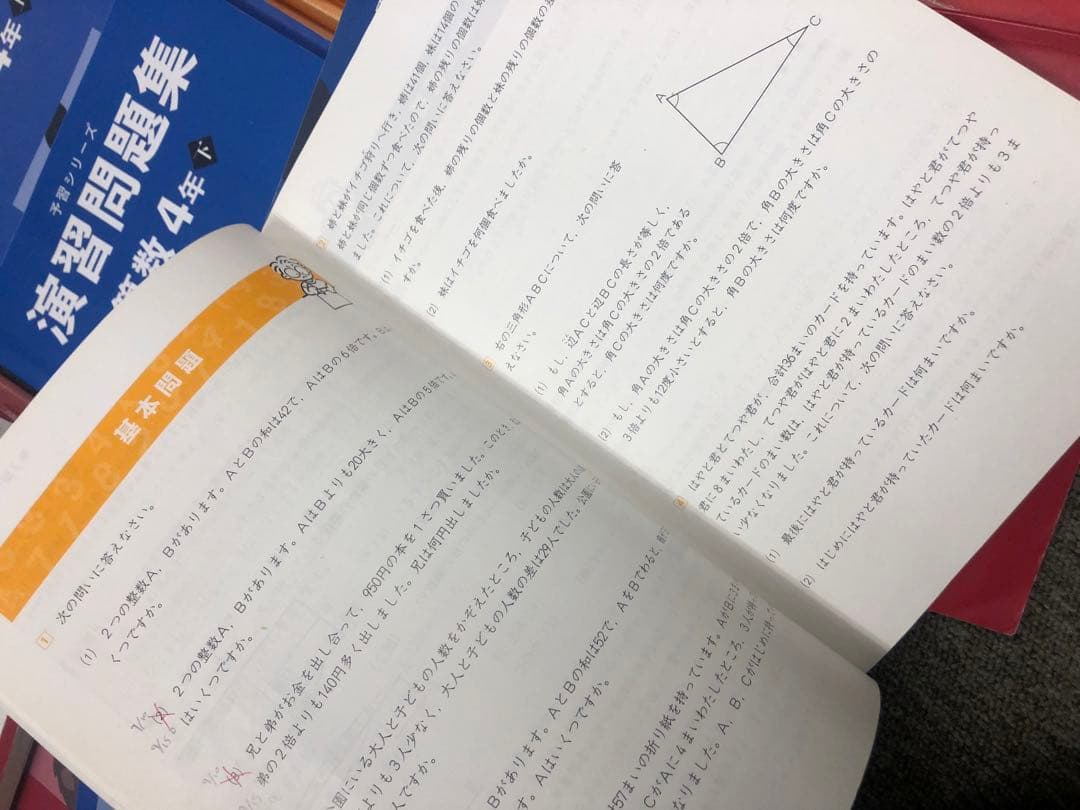 4年
下
予習シリーズ
演習問題集
算数4年
下
基本問題
1 次の問いに答えなさい。
(1) 2つの整数A、Bがあります。AとBの和は42で、AはBの6倍です。
くつですか。
2つの整数A、Bがあります。AはBよりも20大きく、AはBの5倍です。
はいくつですか。
兄と弟がお金を出し合って、950円の本を1さつ買いました。このとき、
弟の2倍よりも140円多く出しました。兄は何円出しましたか。
園にいる大人と子どもの人数をかぞえたところ、子どもの人数は大人の
よりも3人少なく、大人と子どもの人数の差は29人でした。公園に
人ですか。
Bがあります。AとBの和は52で、AをBでわると、
す。Aはいくつですか。
57まいの折り紙を持っています。AがBに3
CがAに4まいわたしたところ、3人が
なりました。A、B、Cがはじめに
2 姉と妹がイチゴ狩りへ行き、姉は41個、妹は14個の
姉と妹が同じ個数ずつ食べたので、姉の残りの個数は
ました。これについて、次の問いに答えなさい。
(1) イチゴを食べた後、姉の残りの個数と妹の残りの個数の
すか。
(2) 妹はイチゴを何個食べましたか。
3 右の三角形ABCについて、次の問いに答
えなさい。
A
B
C
(1) もし、辺ACと辺BCの長さが等しく、
角Aの大きさは角Cの大きさの2倍である
とすると、角Cの大きさは何度ですか。
(2) もし、角Aの大きさは角Cの大きさの2倍で、角Bの大きさは角Cの大きさの
3倍よりも12度小さいとすると、角Bの大きさは何度ですか。
4 はやと君とてつや君が、合計36まいのカードを持っています。はやと君がてつや
君に8まいわたし、てつや君がはやと君に2まいわたしたところ、てつや君が持っ
ているカードのまい数は、はやと君が持っているカードのまい数の2倍よりも3ま
い少なくなりました。これについて、次の問いに答えなさい。
(1) 最後にはやと君が持っているカードは何まいですか。
(2) はじめにはやと君が持っていたカードは何まいですか。